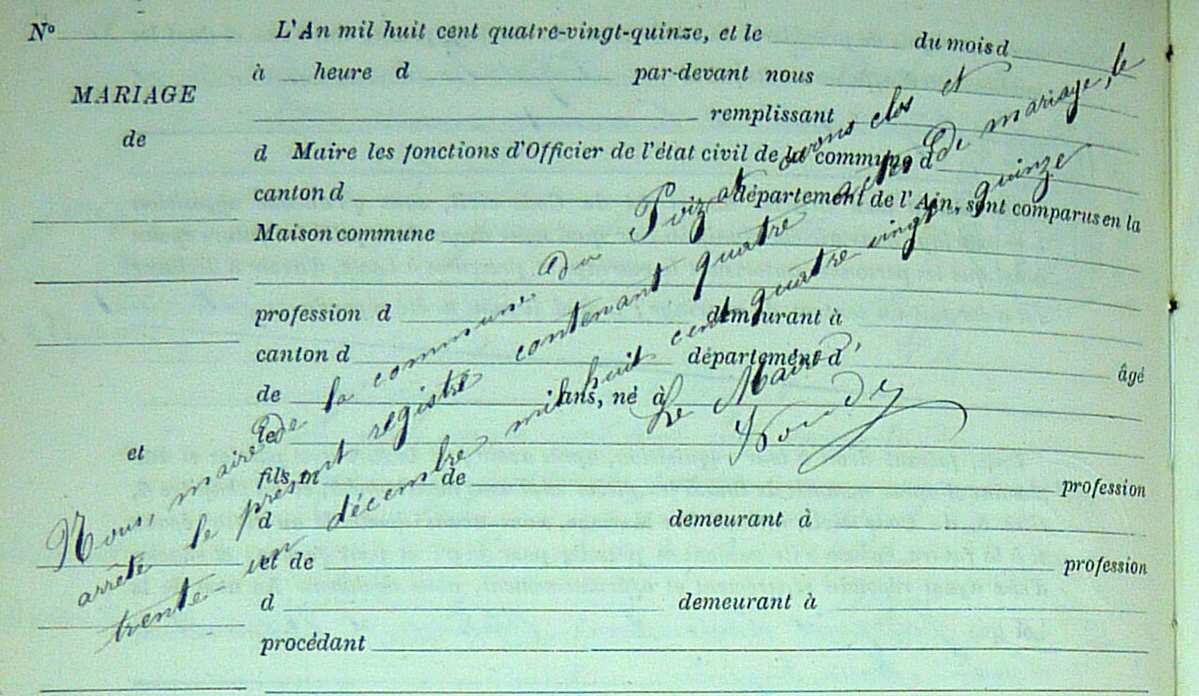 N° L'An mil huit cent quatre-vingt-quinze, et le du mois d
à heure d par-devant nous
MARIAGE
remplissant
de
d Maire les fonctions d'Officier de l'état civil de la commune d
canton d département de l'Ain, sont comparus en la
Maison commune
profession d demeurant à
canton d département d
âgé
de ans, né à
le
et
fils de profession
d demeurant à
et de profession
d demeurant à
procédant
Nous, maire de la commune du Poizat avons clos et
arrêté le présent registre contenant quatre actes de mariage, le
trente un décembre mil huit cent quatre vingt quinze
Le Maire,